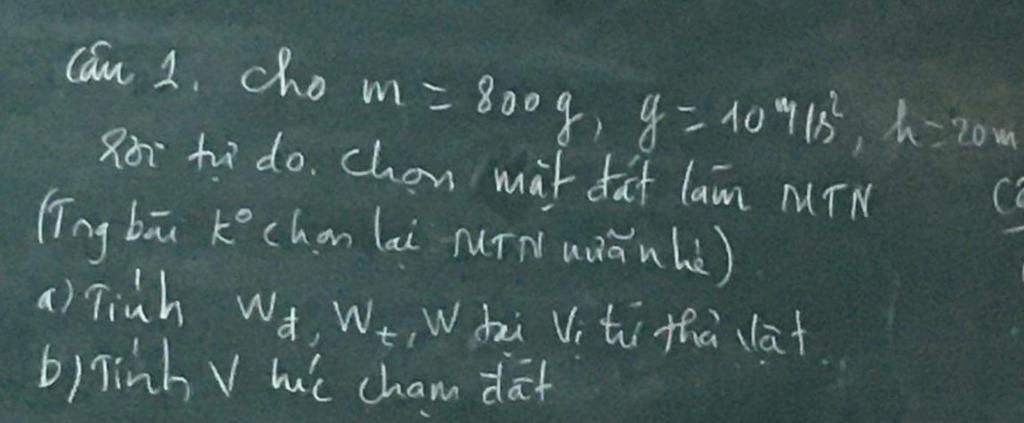 Câu 1. Cho m = 800g, g = 10 m/s², h = 20m
Rơi tự do. Chọn mặt đất làm MTN
(Trg bài k° chọn lại MTN nữa nhé)
a) Tính Wđ, Wt, W tại vị trí thả vật.
b) Tính V lúc chạm đất